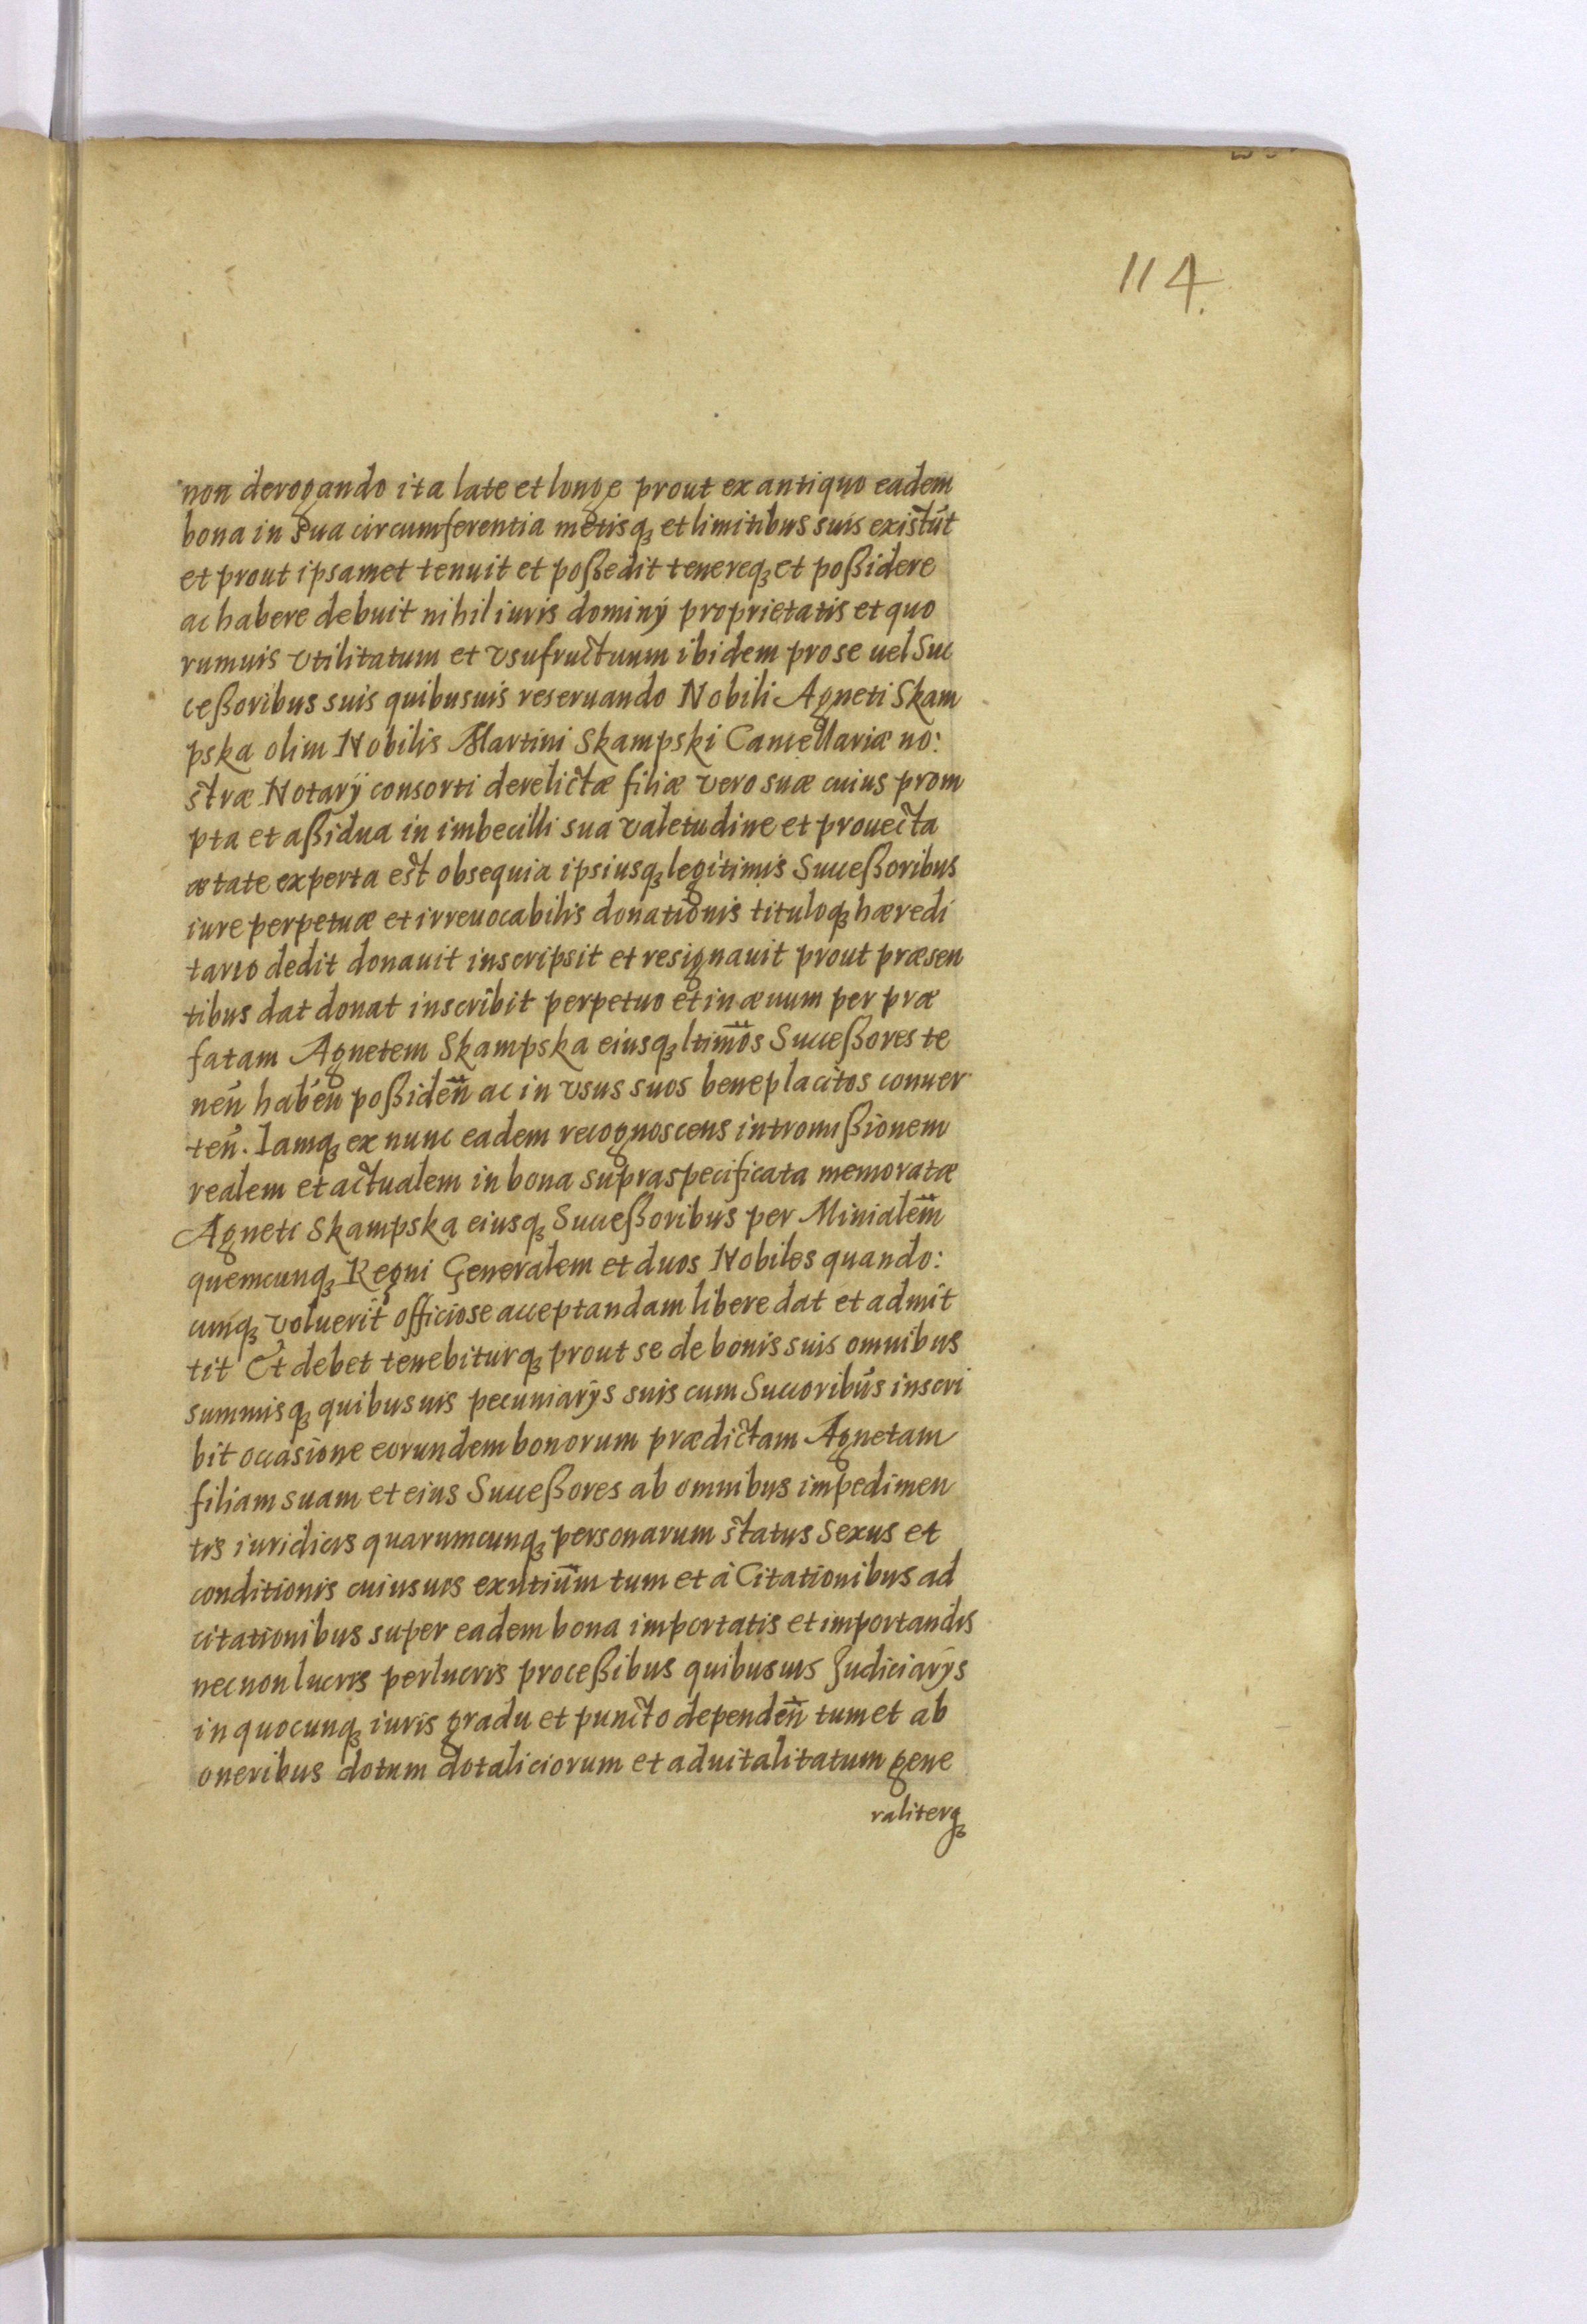 114.
non derogando ita late et longe prout ex antiquo eadem
bona in sua circumferentia metisqꝫ et limitibus suis existu̅t
et prout ipsamet tenuit et poßedit tenereqꝫ et poßidere
ac habere debuit nihil iuris dominÿ proprietatis et quo
rumuis vtilitatum et vsufructuum ibidem pro se uel Suc
ceßoribus suis quibusuis reseruando Nobili Agneti Skam
pska olim Nobilis Martini Skampski Cancellariæ no:
stræ Notarÿ consorti derelictæ filiæ vero suæ cuius prom
pta et aßidua in imbecilli sua valetudine et prouecta
ætate experta est obsequia ipsiusqꝫ legitimis Succeßoribus
iure perpetuæ et irreuocabilis donationis tituloqꝫ hæredi
tario dedit donauit inscripsit et resignauit prout præsen
tibus dat donat inscribit perpetuo et in æuum per præ
fatam Agnetem Skampska eiusqꝫ ltimo̅s Succeßores te
nen̅ haben̅ poßiden̅ ac in vsus suos beneplacitos conuer
ten̅. Iamqꝫ ex nunc eadem recognoscens intromißionem
realem et actualem in bona supraspecificata memoratæ
Agneti Skampska eiusqꝫ Succeßoribus per Minialem̅
quemcunqꝫ Regni Generalem et duos Nobiles quando:
cunqꝫ voluerit officiose acceptandam libere dat et admit
tit Et debet tenebiturqꝫ prout se de bonis suis omnibus
summisqꝫ quibusuis pecuniarÿs suis cum Succoribus inscri
bit occasione eorundem bonorum prædictam Agnetam
filiam suam et eius Succeßores ab omnibus impedimen
tis iuridicis quarumcunqꝫ personarum status sexus et
conditionis cuiusuis exntiu̅m tum et à Citationibus ad
citationibus super eadem bona importatis et importandis
necnon lucris perlucris proceßibus quibusuis Judiciarÿs
in quocunqꝫ iuris gradu et puncto dependen̅ tum et ab
oneribus dotum dotaliciorum et aduitalitatum gene
raliterqꝫ